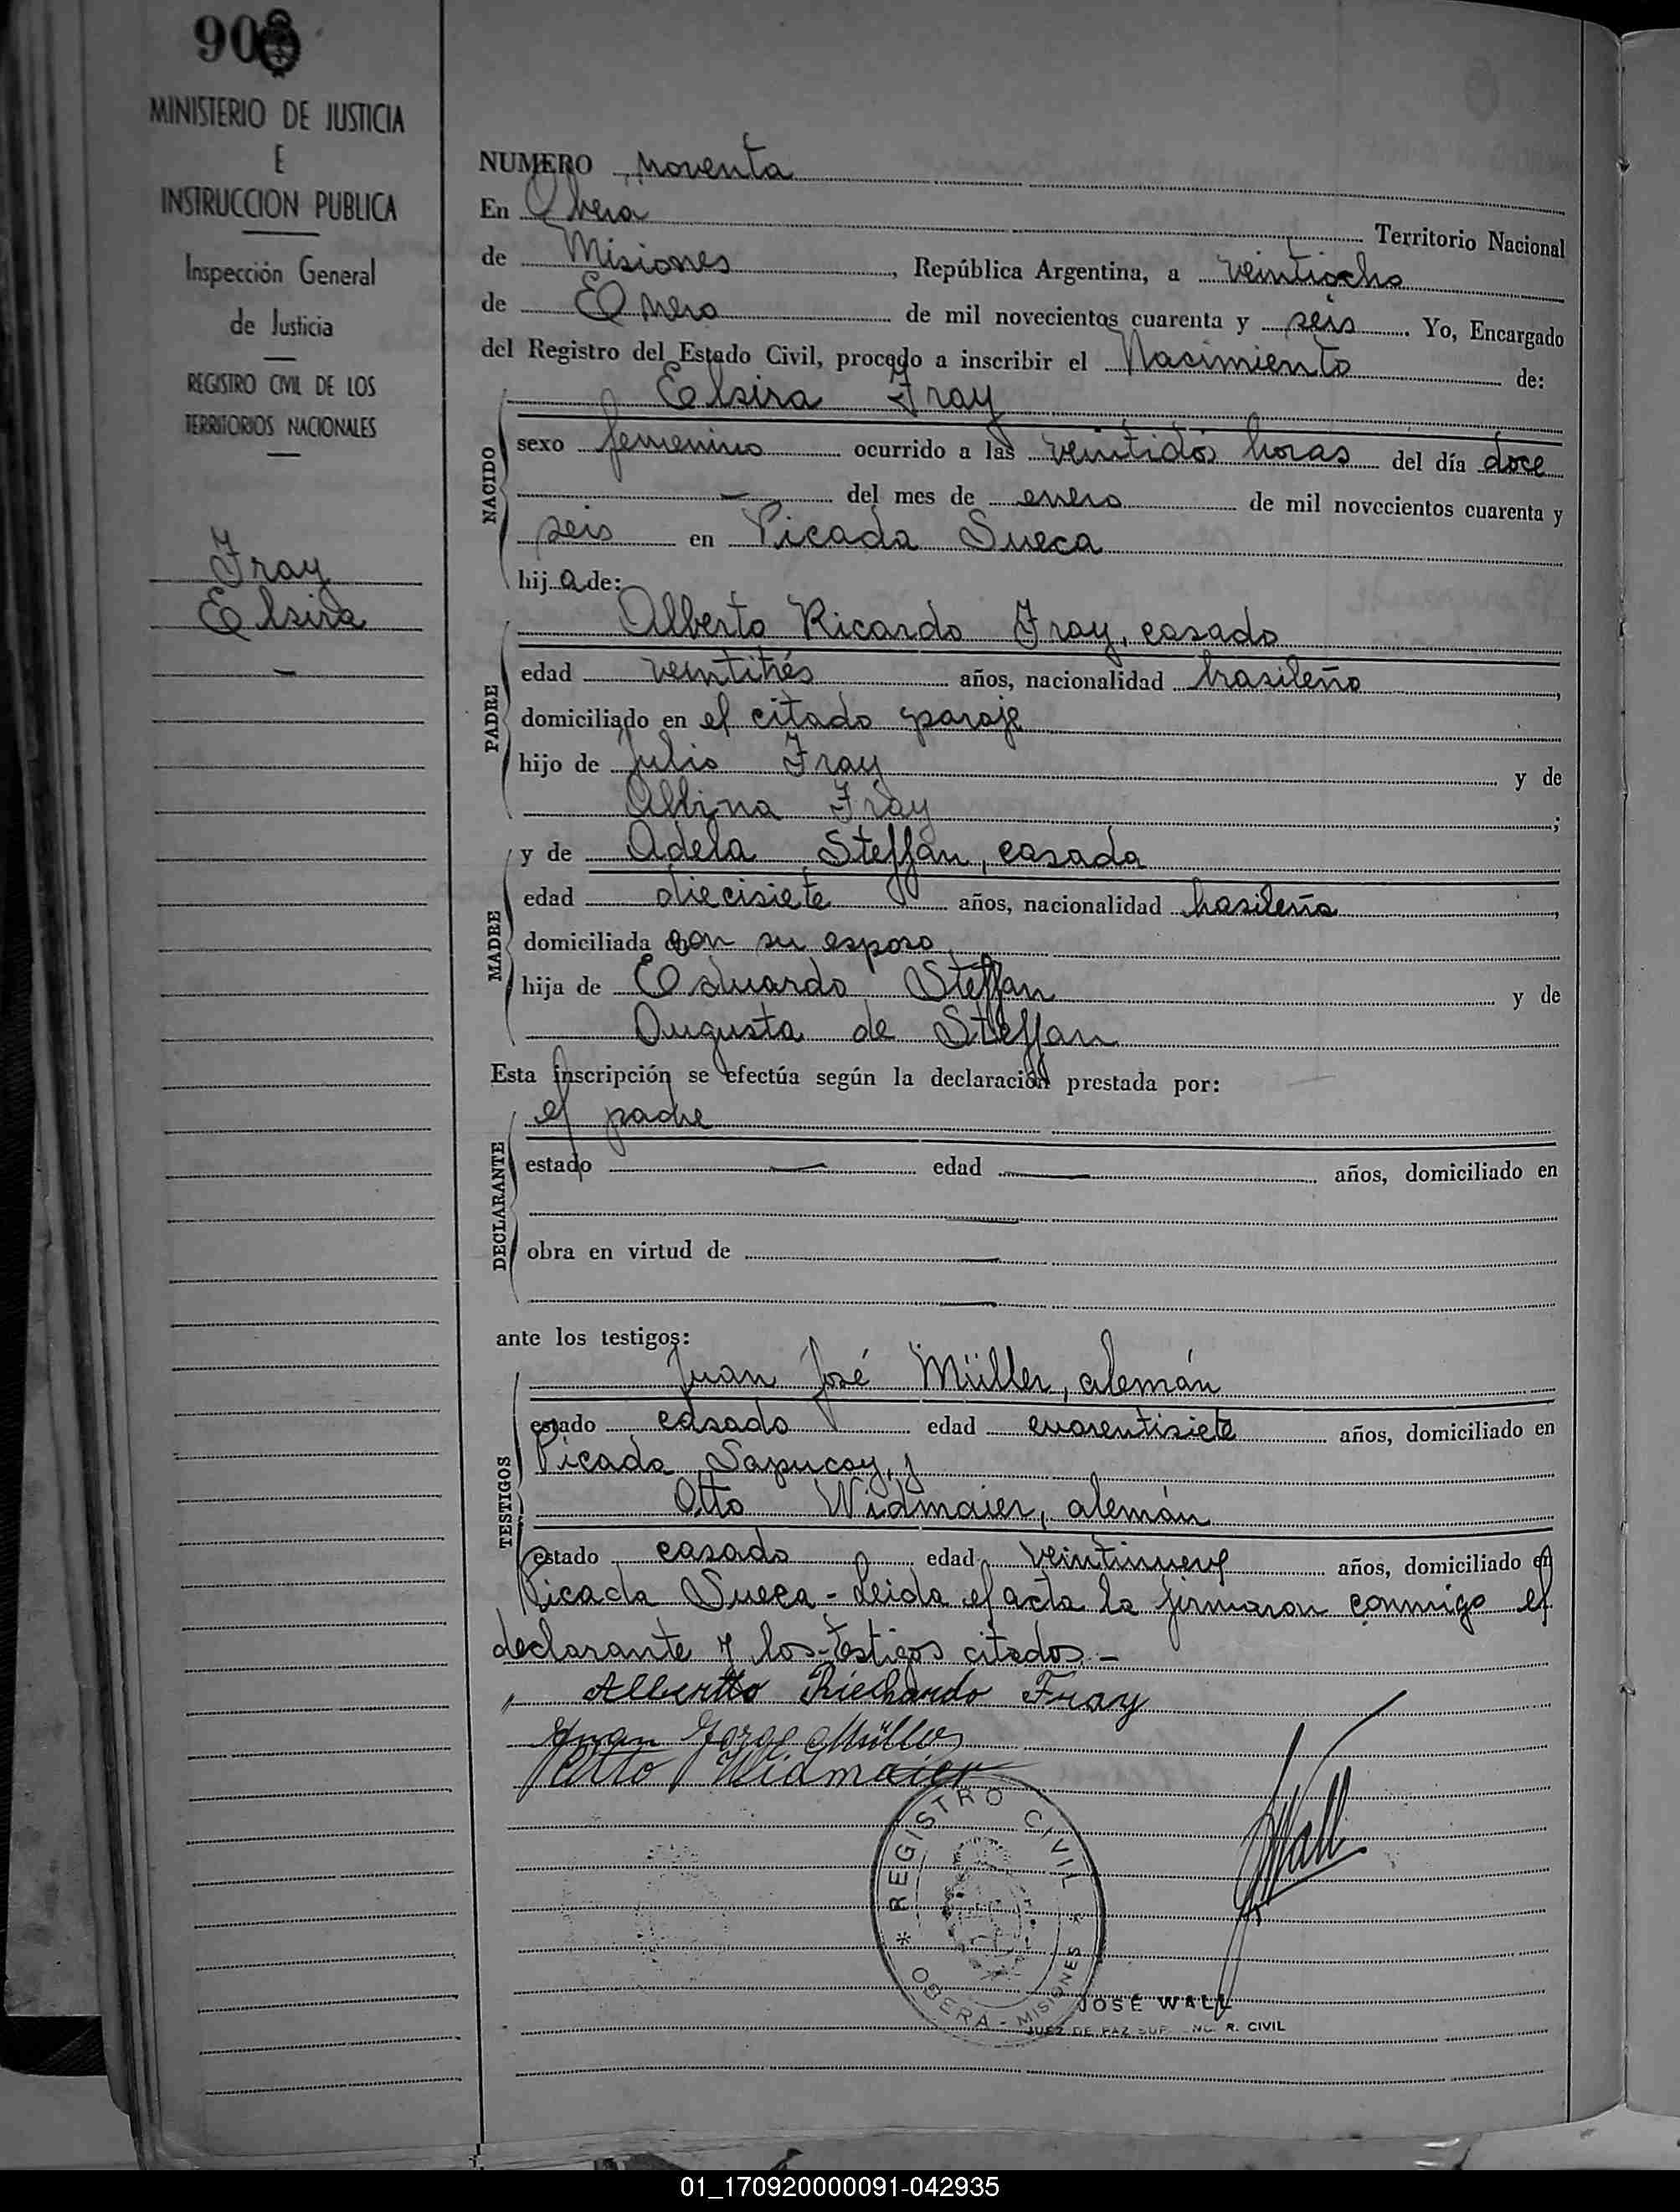 90
MINISTERIO DE JUSTICIA
E
INSTRUCCION PUBLICA
Inspección General
de Justicia
REGISTRO CIVIL DE LOS
TERRITORIOS NACIONALES
Fray
Elsira
NUMERO noventa
En Obera Territorio Nacional
de Misiones, República Argentina, a veintiocho
de Enero de mil novecientos cuarenta y seis. Yo, Encargado
del Registro del Estado Civil, procedo a inscribir el Nacimiento de:
Elsira Fray
NACIDO
sexo femenino ocurrido a las veintidós horas del día doce
— del mes de enero de mil novecientos cuarenta y
seis en Picada Sueca
hija de:
Alberto Ricardo Fray, casado
PADRE
edad veintitrés años, nacionalidad brasileño,
domiciliado en el citado paraje
hijo de Julio Fray y de
Albina Fray;
y de Adela Steffan, casada
MADRE
edad diecisiete años, nacionalidad brasileña,
domiciliada con su esposo
hija de Eduardo Steffan y de
Augusta de Steffan
Esta inscripción se efectúa según la declaración prestada por:
el padre
DECLARANTE
estado — edad — años, domiciliado en
obra en virtud de —
ante los testigos:
Juan José Müller, alemán
TESTIGOS
estado casado edad cuarentisiete años, domiciliado en
Picada Sapucay, y
Otto Widmaier, alemán
estado casado edad veintinueve años, domiciliado en
Picada Sueca - Leida el acta la firmaron conmigo el
declarante y los testigos citados. -
Albertto Riechardo Fray
Juan Jorge Müller
Otto Widmaier
JWall
REGISTRO CIVIL
* OBERA - MISIONES *
JOSÉ WALL
JUEZ DE PAZ SUP. ENC. R. CIVIL
01_170920000091-042935